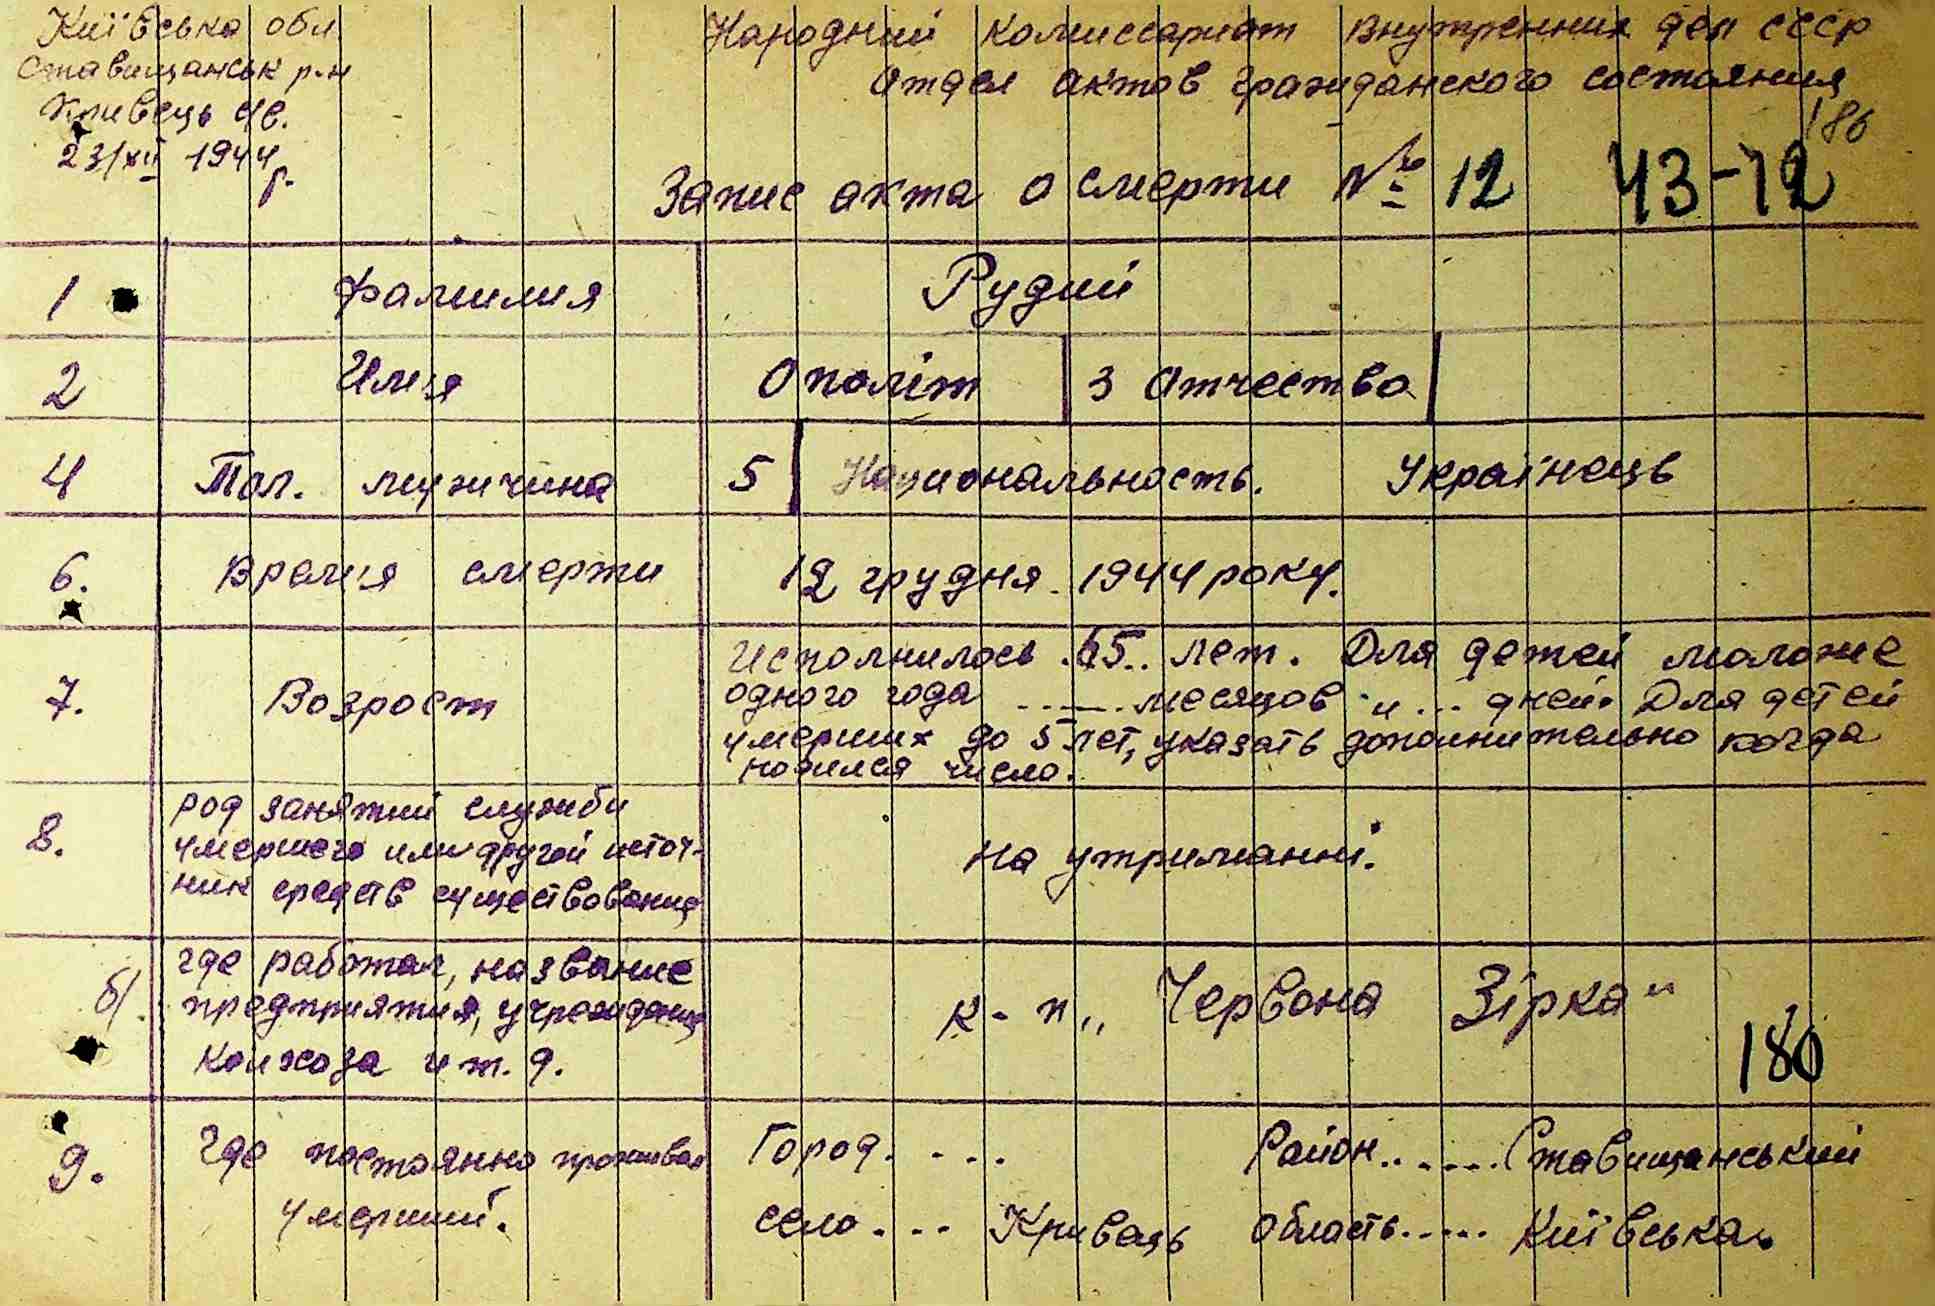 Київська обл.
Народний комиссариат внутренних дел СССР
Ставищанськ р-н
Отдел актов гражданского состояния
Кривець с/в.
186
23/XII 1944 г.
Запис акта о смерти № 12 43-12
1 Фамилия Рудий
2 Имя Ополіт 3 Отчество
4 Пол. мужчина 5 Национальность. Українець
6. Время смерти 12 грудня 1944 року.
7. Возрост
Исполнилось .65.. лет. Для детей моложе
одного года ...... месяцов и ... дней. Для детей
умерших до 5 лет, указать дополнительно когда
родился число.
8. род занятий служби
умершего или другой источ-
ник средств существования
на утриманні.
б/. где работал, название
предприятия, учреждения
колхоза и т. д.
к-п „Червона Зірка"
180
9. Где постоянно проживал
умерший.
Город. ... Район....... Ставищанський
село. ... Кривець область..... Київська.